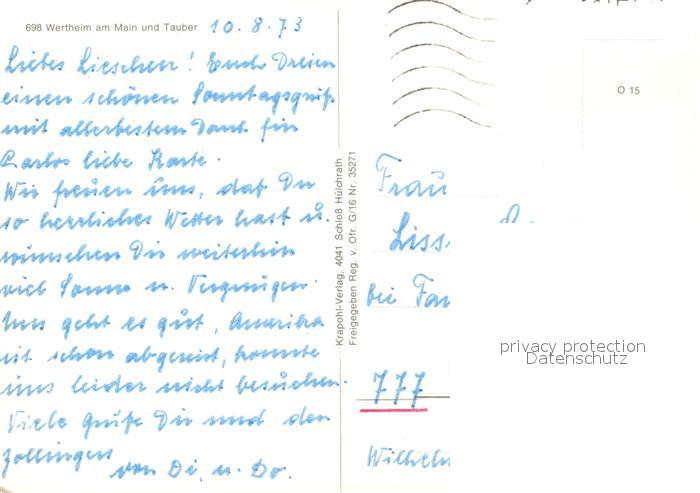 698 Wertheim am Main und Tauber 10.8.73
Liebes Lieschen! Euch Dreien
einen schönen Sonntagsgruß
mit allerbestem Dank für
Carlos liebe Karte.
Wir freuen uns, daß Du
so herrliches Wetter hast u.
wünschen Dir weiterhin
viel Sonne u. Vergnügen.
Uns geht es gut, Amerika
ist schon abgereist, konnte
uns leider nicht besuchen.
Viele Grüße Dir und den
Zollingers
von Di. u. Do.
Krapohl-Verlag, 4041 Schloß Hülchrath
Freigegeben Reg. v. Ofr. G/16 Nr. 35271
O 15
Frau
Liss
bei Fam
777
Wilhelm
privacy protection
Datenschutz